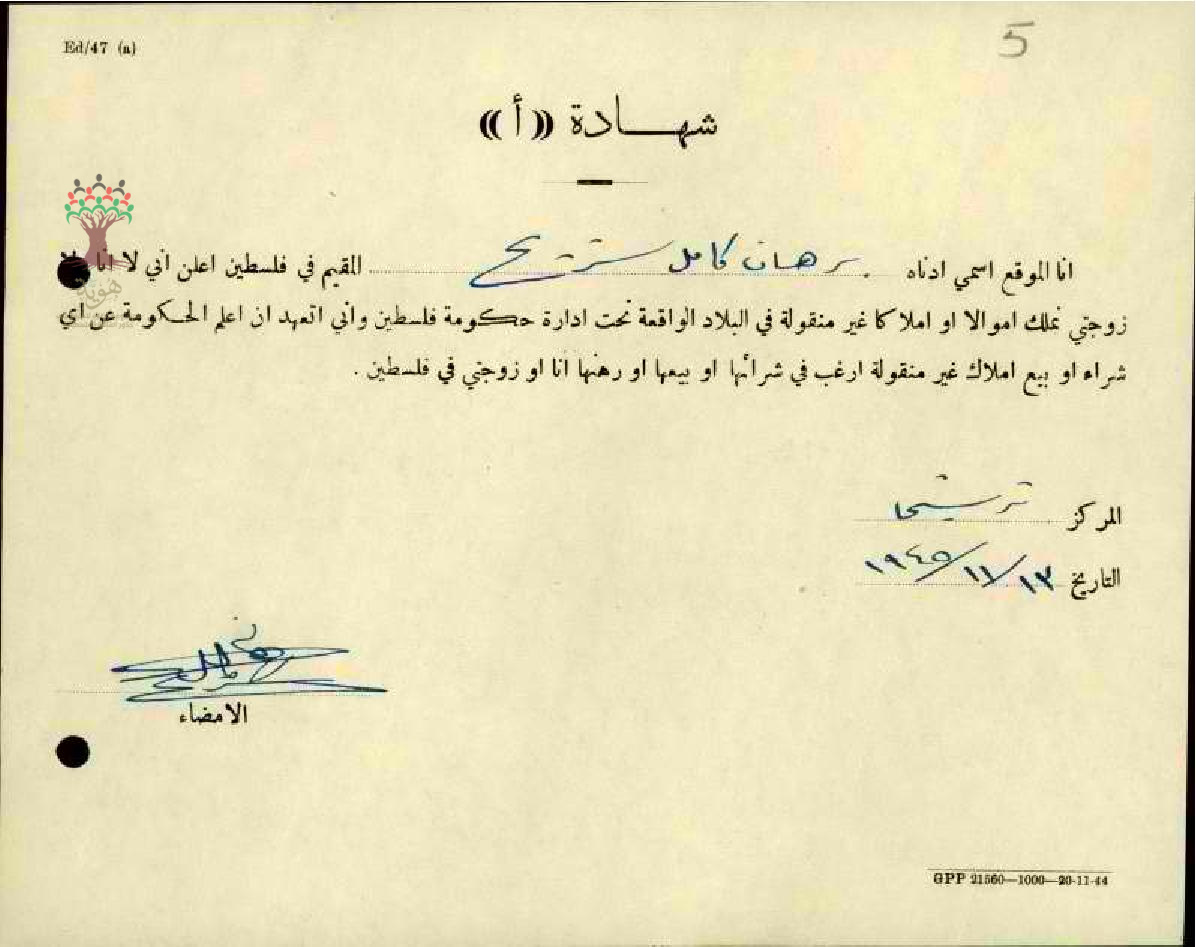 Ed/47 (a)
5
شهادة «أ»
انا الموقع اسمي ادناه برهان كامل شريح المقيم في فلسطين اعلن اني لا انا ولا
زوجتي نملك اموالا او املاكا غير منقولة في البلاد الواقعة تحت ادارة حكومة فلسطين واني اتعهد ان اعلم الحكومة عن اي
شراء او بيع املاك غير منقولة ارغب في شرائها او بيعها او رهنها انا او زوجتي في فلسطين .
المركز ترشيحا
التاريخ ١٣/١١/١٩٤٥
الامضاء
هوية
GPP 21560—1000—20-11-44